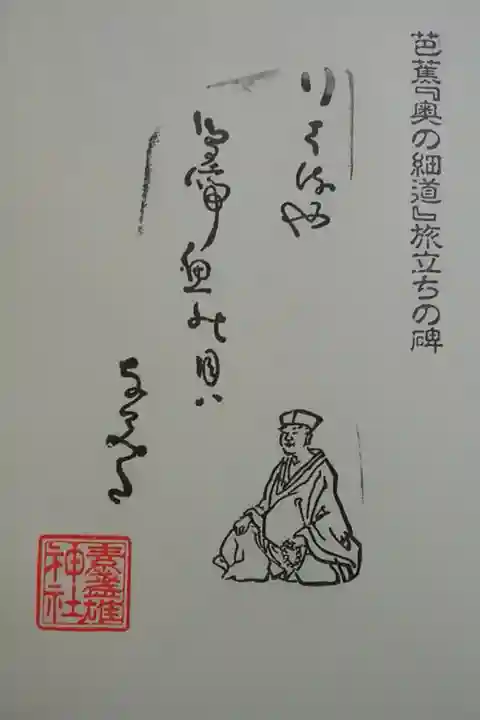 芭蕉『奥の細道』旅立ちの碑
行く春や
鳥啼魚の目ハ
なみだ
素盞雄
神社